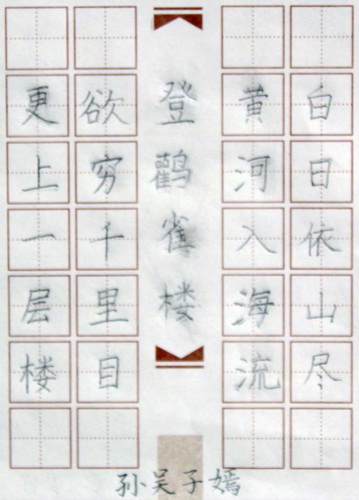 白日依山尽
黄河入海流
登鹳雀楼
欲穷千里目
更上一层楼
孙吴子嫣